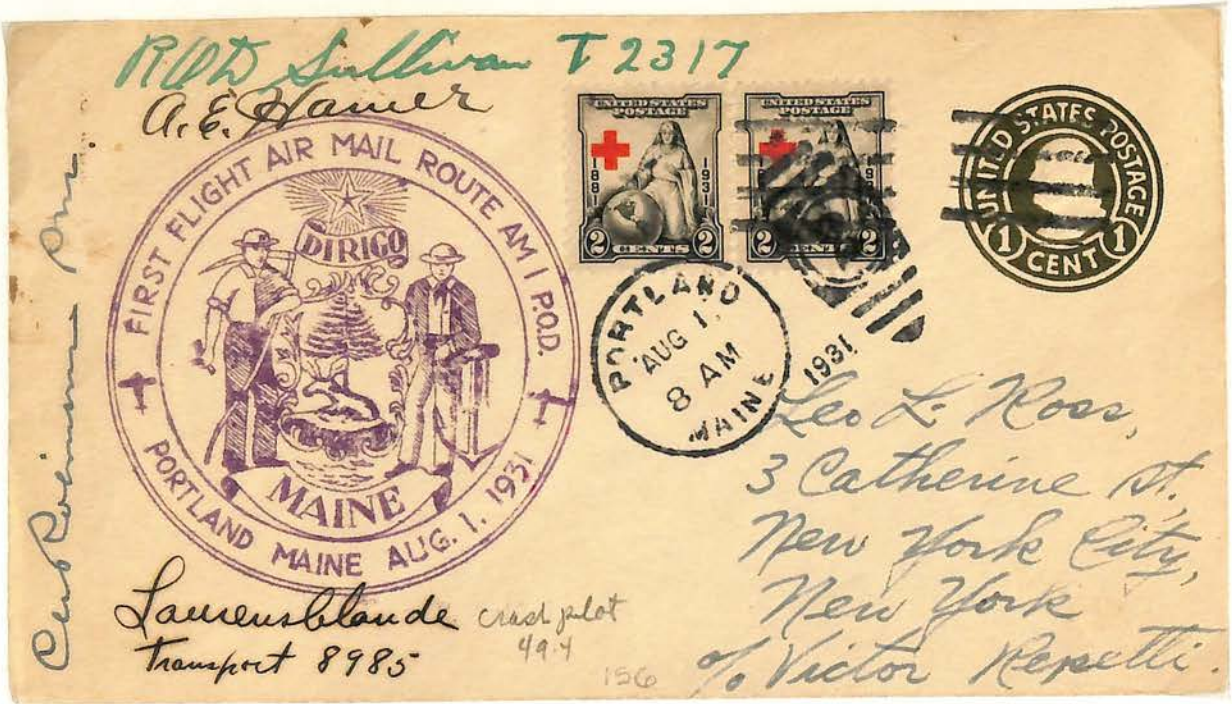 R.O.D. Sullivan T 2317
A.E. Hamer
FIRST FLIGHT AIR MAIL ROUTE AM 1 P.O.D.
DIRIGO
MAINE
PORTLAND MAINE AUG. 1, 1931
UNITED STATES
POSTAGE
1881 1931
2 CENTS 2
UNITED STATES
POSTAGE
2 CENTS 2
UNITED STATES POSTAGE
1 CENT 1
PORTLAND
AUG 1,
8 AM
MAINE
1931
Leo L. Ross,
3 Catherine St.
New York City,
New York
c/o Victor Repetti.
Transport 8985
crash pilot
49.4
156